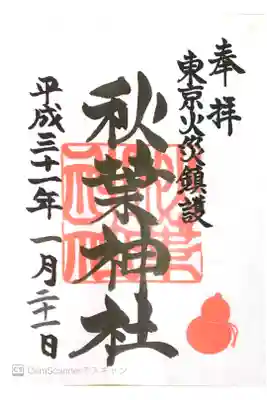 奉拝
東京火災鎮護
秋葉神社
平成三十一年一月二十一日
CS CamScannerでスキャン